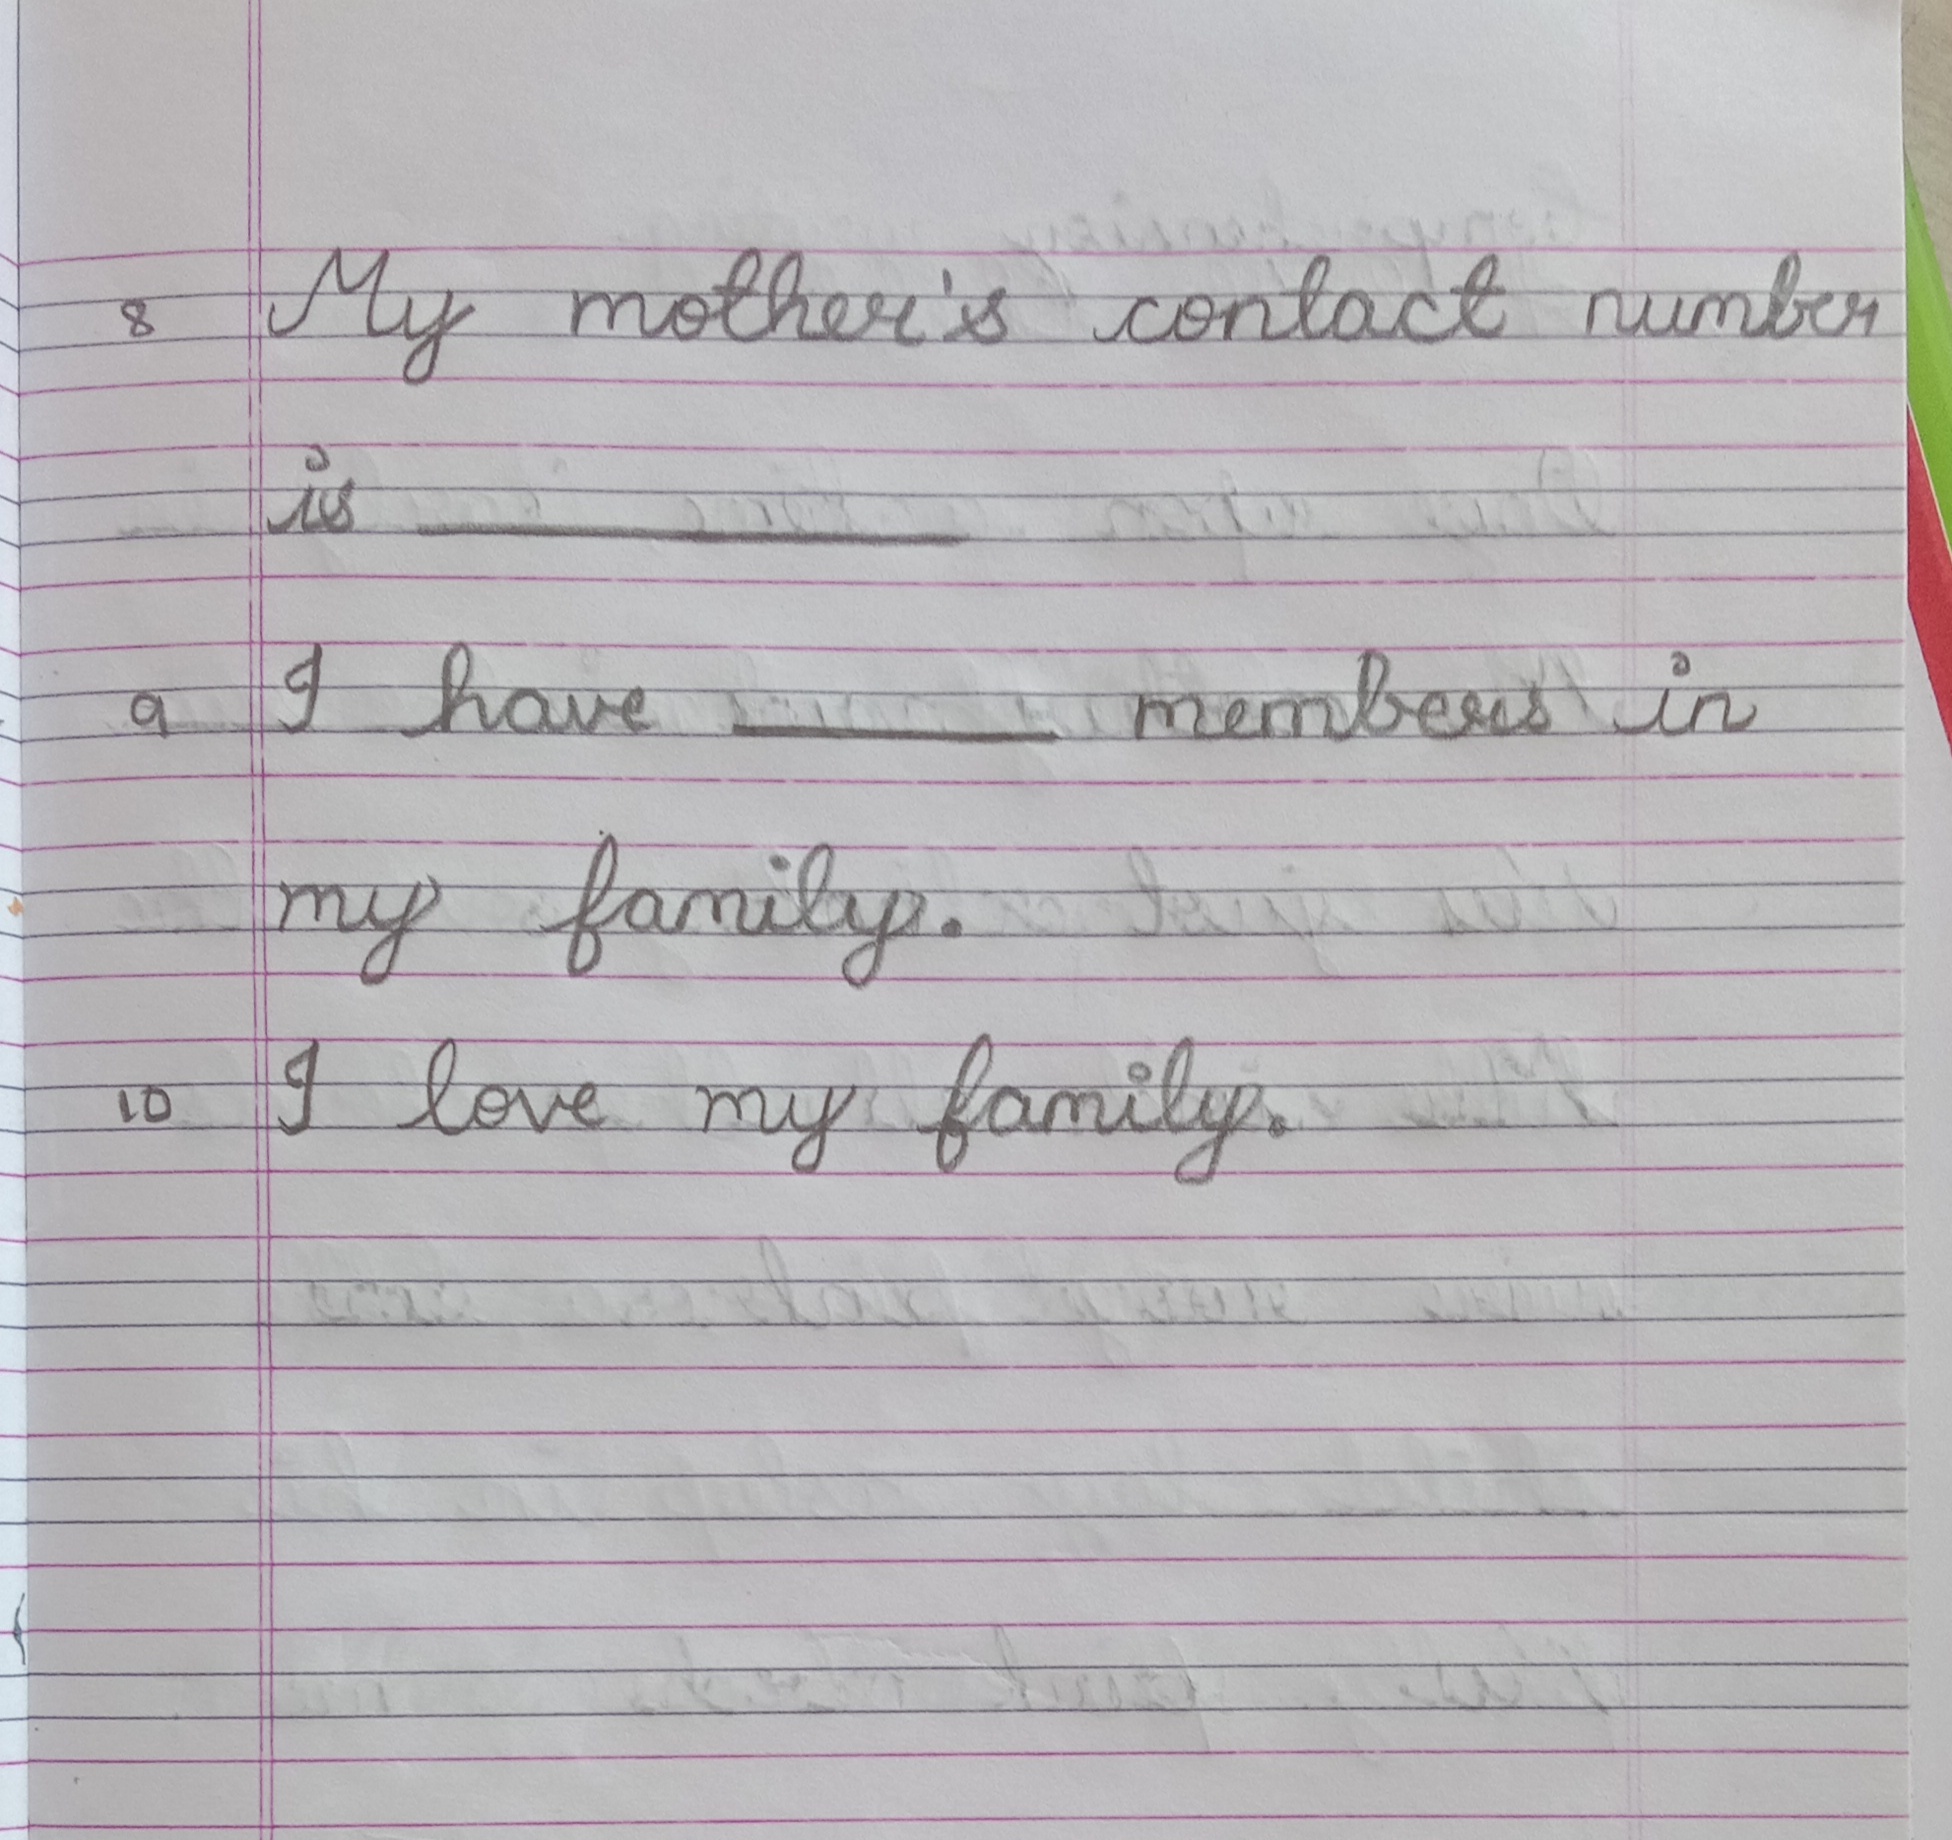 8 My mother's contact number
is __________
9 I have ______ members in
my family.
10 I love my family.